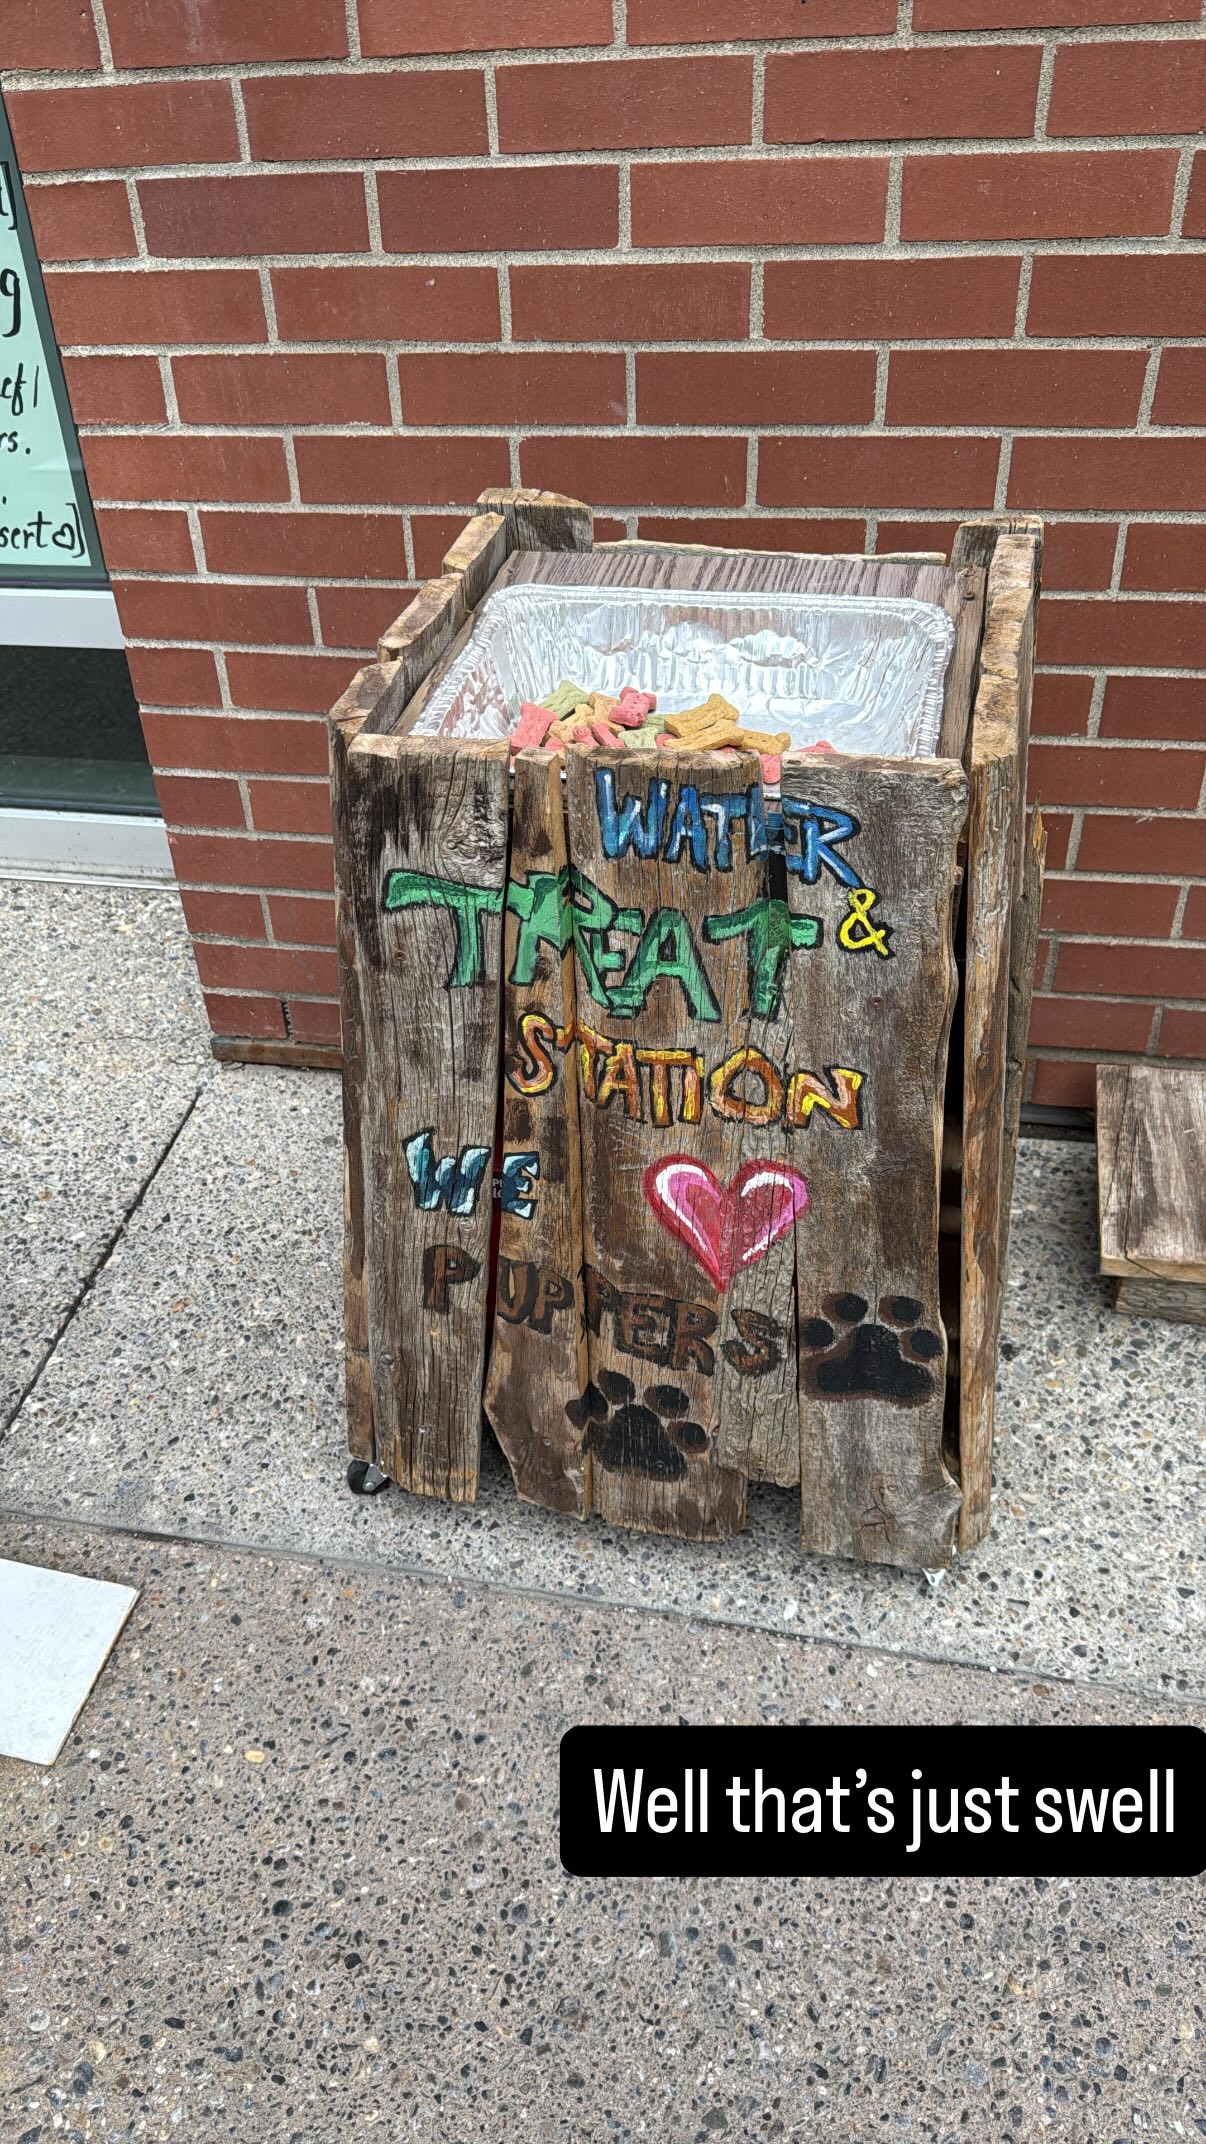 WATER
TREAT &
STATION
WE
PUPPERS
Well that's just swell